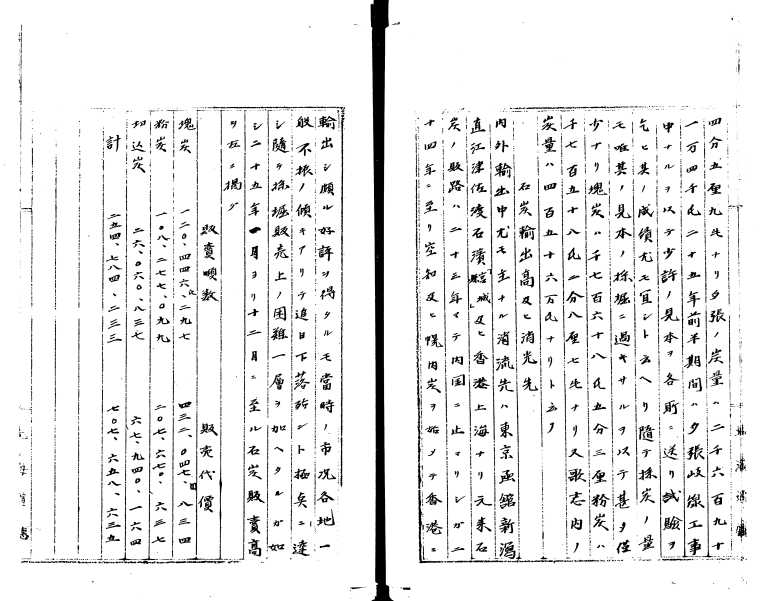 四分五厘九毛ナリ夕張ノ炭量ハ二千六百九十
一万四千瓲二十五年前半期間ハ夕張岐線工事
中ナルヲ以テ少許ノ見本ヲ各所ニ送リ試験ヲ
乞ヒ其ノ成績尤モ宜シト云ヘリ随テ採炭ノ量
モ唯其ノ見本ノ採堀ニ過キサルヲ以テ甚タ僅
少ナリ塊炭ハ千七百六十八瓲五分三厘粉炭ハ
千七百五十八瓲二分八厘七毛ナリ又歌志内ノ
炭量ハ四百五十六万瓲ナリト云フ
石炭輸出高及ヒ消流先
内外輸出中尤モ主ナル消流先ハ東京函館新潟
直江津伏木石濱及ヒ香港上海ナリ元来石
炭ノ販路ハ二十三年マテ内国ニ止マリシガニ
十四年ニ至リ空知及ヒ幌内炭ヲ始メテ香港ニ
輸出シ頗ル好評ヲ得タルモ當時ノ市况各地一
般不振ノ傾キアリテ追日下落殆ント極矣ニ達
シ隨テ採堀販売上ノ困難一層ヲ加ヘタルガ如
シ二十五年一月ヨリ十二月ニ至ル石炭販賣高
ヲ左ニ掲グ
販賣噸数 販売代價
塊炭 一二〇、四四六、二九七 四三二、〇四七、八三四
粉炭 一〇八、二七七、〇九九 二〇七、六七〇、六三七
切込炭 二六、〇六〇、八三七 六七、九四〇、一六四
計 二五四、七八四、二三三 七〇七、六五八、六三五